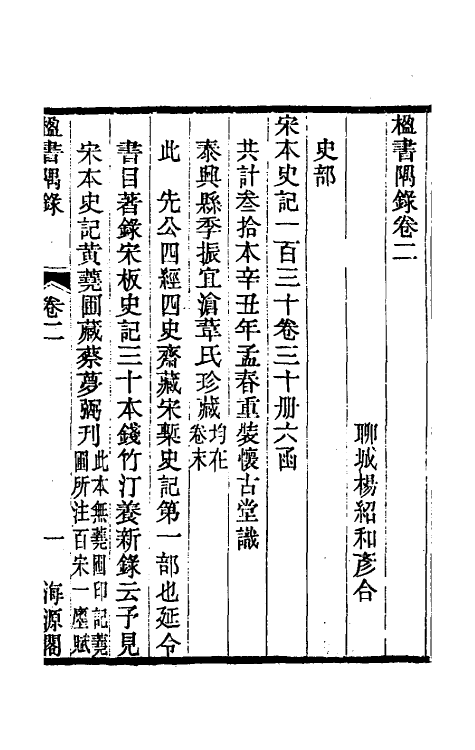 楹書隅錄卷二
聊城楊紹和彥合
史部
宋本史記一百三十卷三十册六函
共計叁拾本辛丑年孟春重裝懷古堂識
泰興縣季振宜滄葦氏珍藏均在卷末
此　先公四經四史齋藏宋槧史記第一部也延令
書目著錄宋板史記三十本錢竹汀養新錄云予見
宋本史記黃蕘圃藏蔡夢弼刊此本無蕘圃印記蕘圃所注百宋一廛賦
楹書隅錄　卷二　一　海源閣